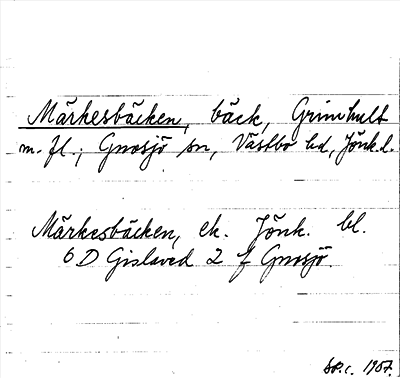 Märkesbäcken, bäck, Grimhult
m. fl.; Gnosjö sn, Västbo hd, Jönk. l.
Märkesbäcken, ek. Jönk. bl.
6 D Gislaved 2 f Gnosjö.
1957.